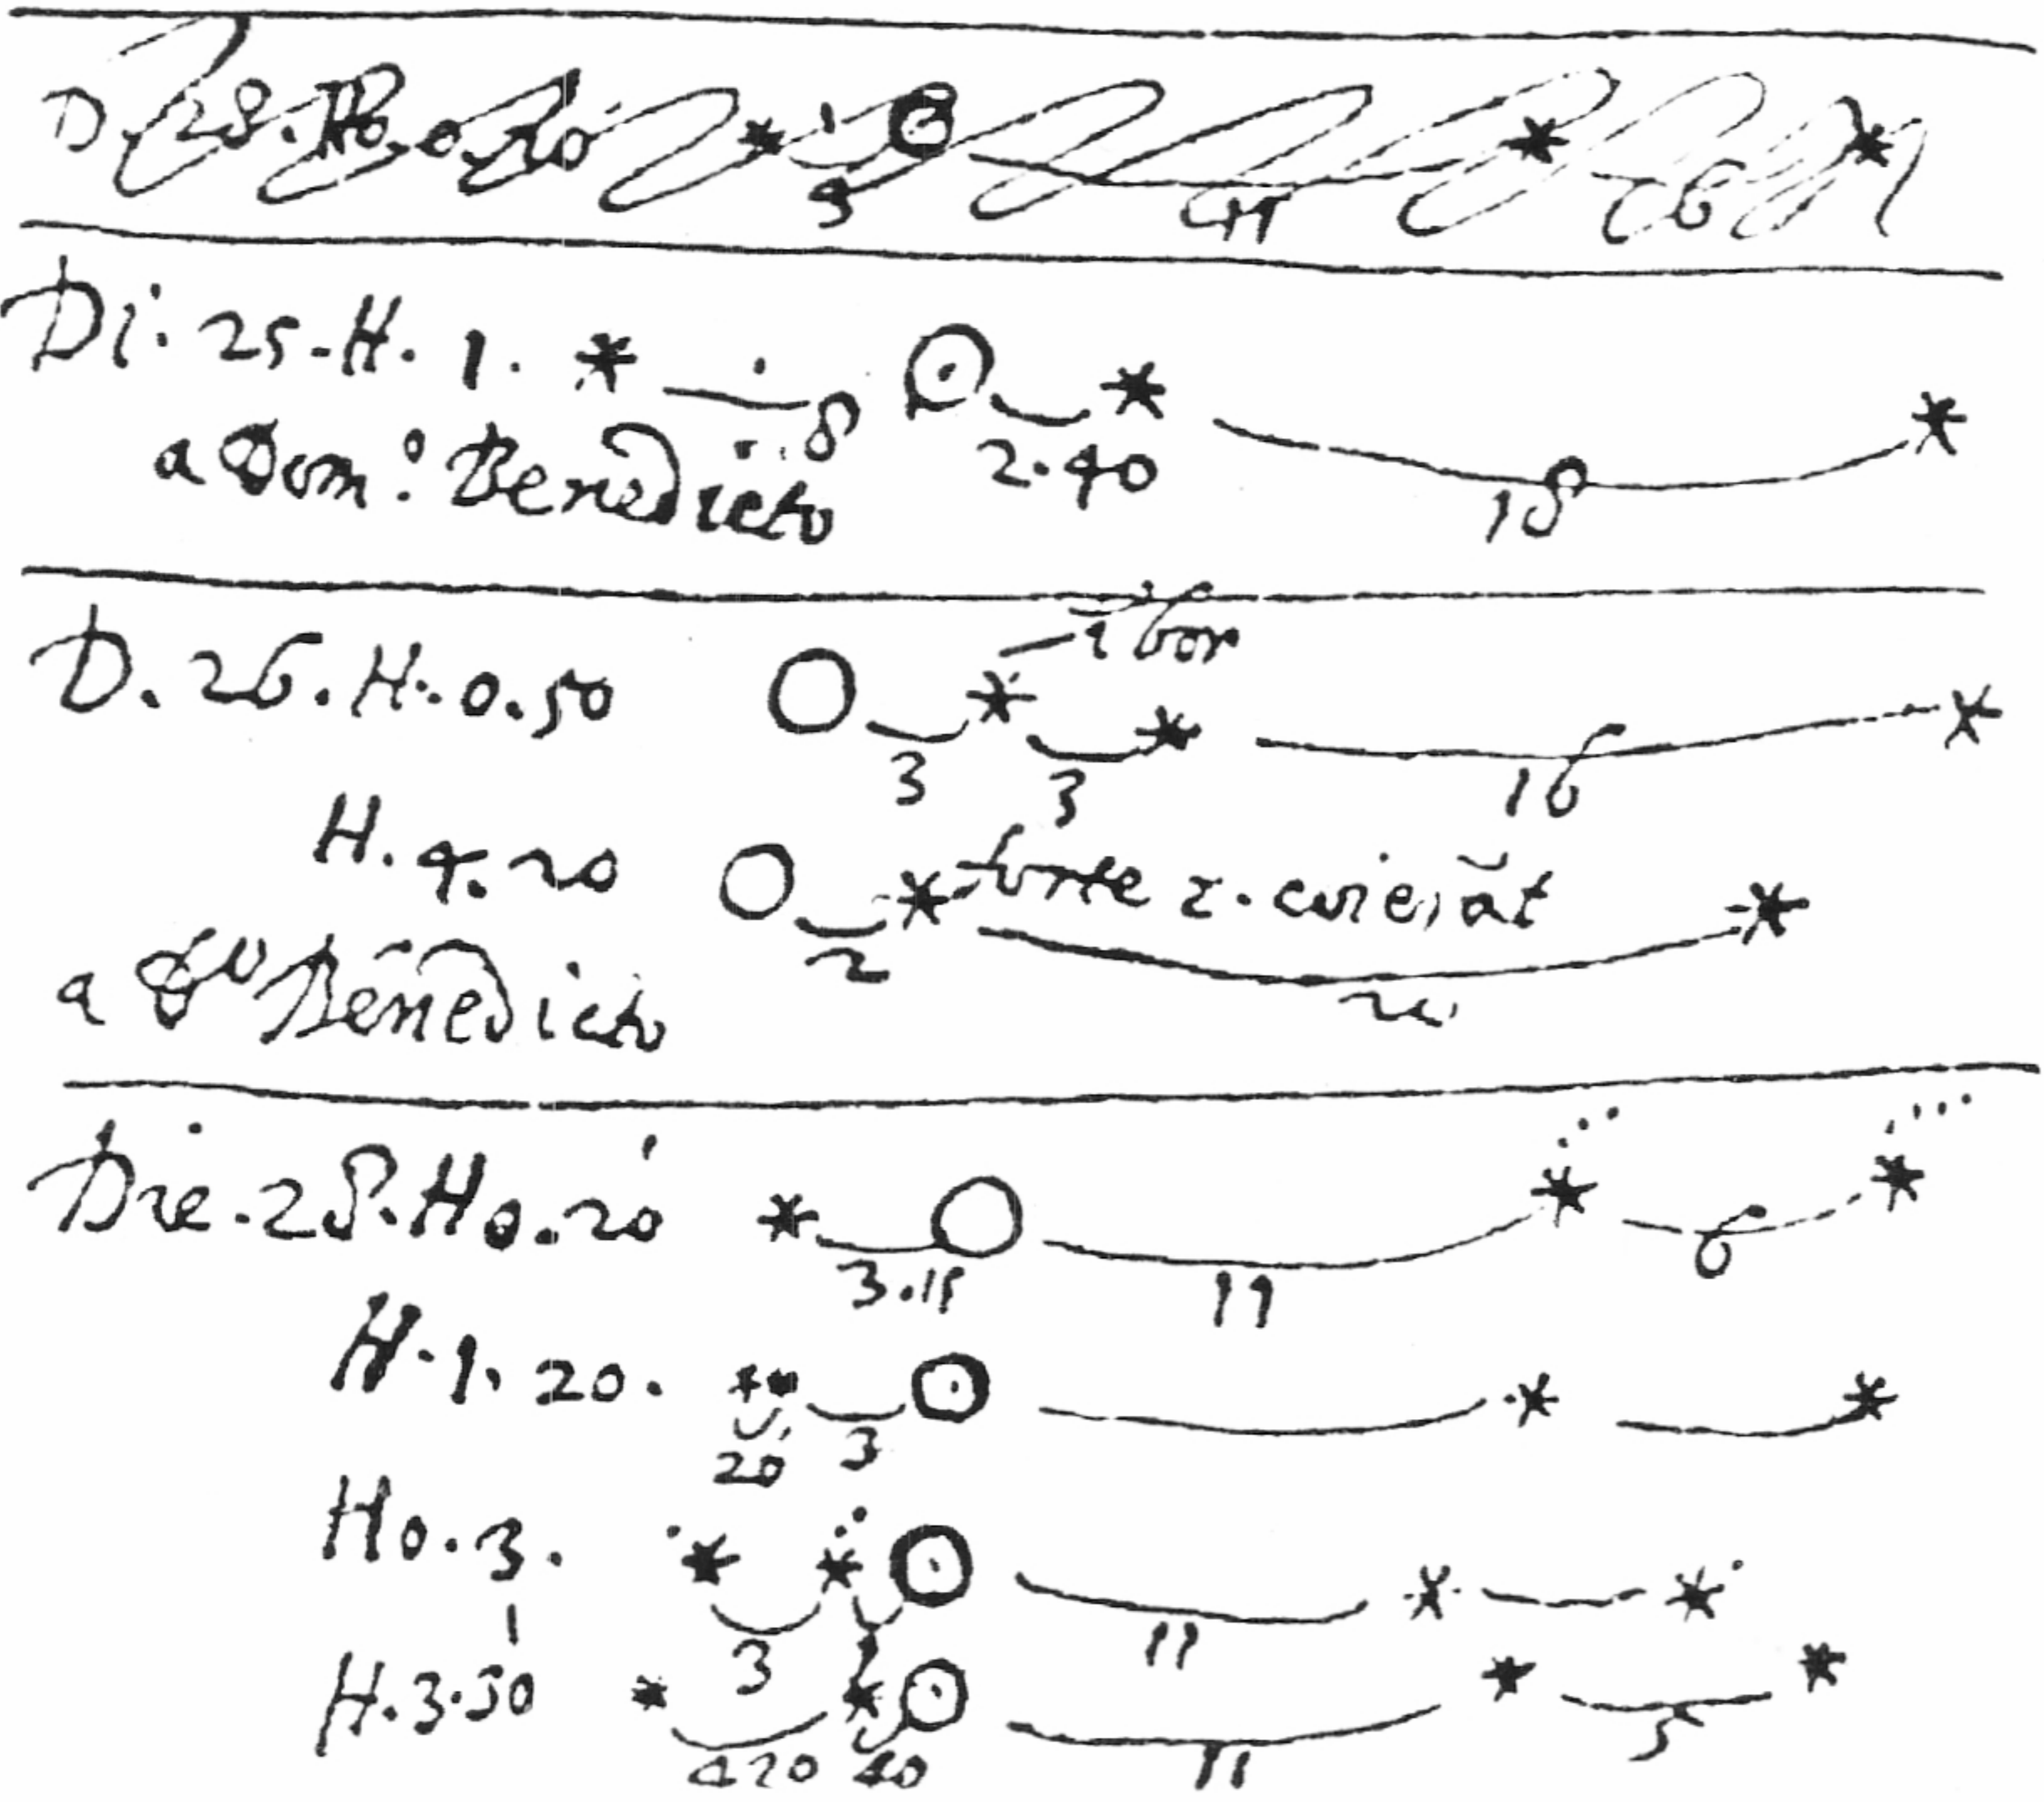 D 28. Ho. 0.20 * 3 O 11 * 6 *
Di: 25. H. 1. * 8 O 2.40 * 18 *
a Dom:o Benedicto
2 bor
D. 26. H. 0.50 O 3 * 3 * 16 *
H. 4. 20 O 2 * forte 2. coierāt *
a Do Benedicto
Die. 28. Ho. 0. 20 * 3.15 O 11 * 6 *
H. 1. 20. ** 20 3 O * *
Ho. 3. * 3 * 1 O 11 * *
H. 3. 30 * 4 20 * 40 O 11 * 5 *